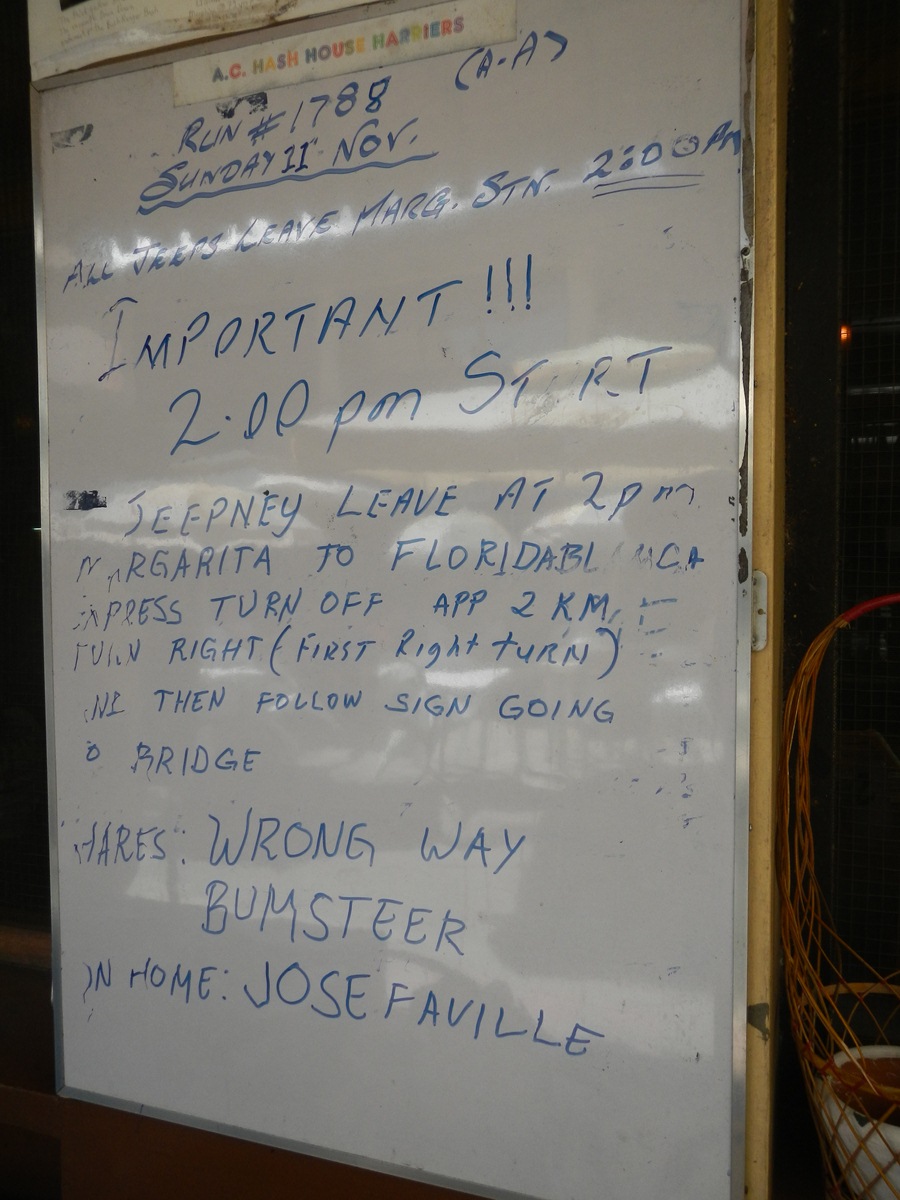 A.C. HASH HOUSE HARRIERS
RUN #1788 (A-A)
SUNDAY 11 NOV.
ALL JEEPS LEAVE MARG. STN. 2:00 PM
IMPORTANT!!!
2:00 pm START
JEEPNEY LEAVE AT 2pm
MARGARITA TO FLORIDABLANCA
EXPRESS TURN OFF APP 2 KM
TURN RIGHT (FIRST Right tURN)
AND THEN FOLLOW SIGN GOING
TO BRIDGE
HARES: WRONG WAY
BUMSTEER
ON HOME: JOSEFAVILLE